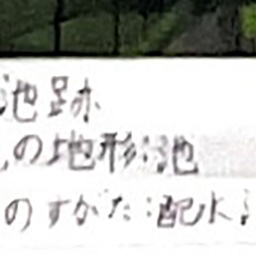 池跡
の地形:池
のすがた:配水